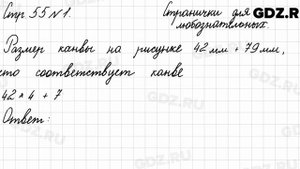 Стр 55 №1. Странички для любознательных.
GDZ.R
Размер канвы на рисунке 42 мм + 79 мм,
что соответствует канве
42 * 4 + 7
Ответ: